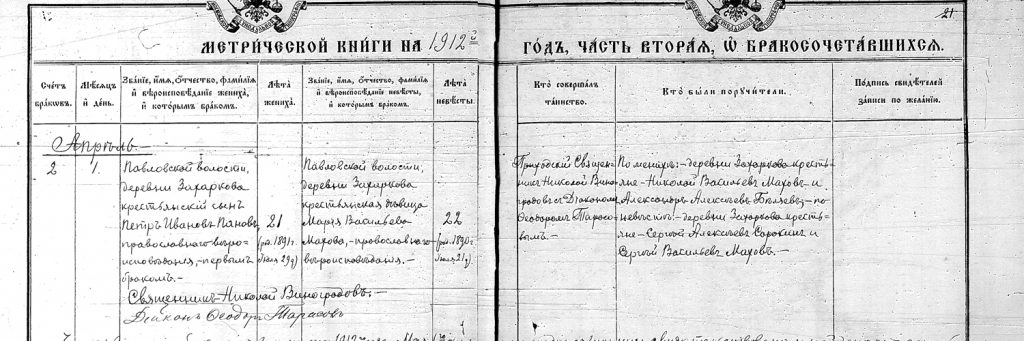 21
МЕТРИЧЕСКОЙ КНИГИ НА 1912й
ГОДЪ, ЧАСТЬ ВТОРАЯ, Ѡ БРАКОСОЧЕТАВШИХСЯ.
Счетъ браковъ.
Мѣсяцъ и день.
Званіе, имя, отчество, фамилія
и вѣроисповѣданіе жениха,
и которымъ бракомъ.
Лѣта
жениха.
Званіе, имя, отчество, фамилія
и вѣроисповѣданіе невѣсты,
и которымъ бракомъ.
Лѣта
невѣсты.
Кто совершалъ
таинство.
Кто были поручители.
Подпись свидѣтелей
записи по желанію.
Апрѣль
2
1.
Павловской волости,
деревни Захаркова
крестьянскій сынъ
Петръ Ивановъ Пановъ,
православнаго вѣро-
исповѣданія,-первымъ
бракомъ.-
21
(ро. 1891 г.
Іюня 29 д)
Павловской волости,
деревни Захаркова
крестьянская дѣвица
Марія Васильева
Махова,-православнаго
вѣроисповѣданія.-
22
(ро. 1890 г.
Іюля 21 д)
Приходскій Священ-
никъ Николай Вино-
градовъ съ Діакономъ
Ѳеодоромъ Тарасо-
вымъ.-
По женихѣ:- деревни Захаркова кресть-
яне- Николай Васильевъ Маховъ и
Александръ Алексѣевъ Бѣляевъ,- по
невѣстѣ:- деревни Захаркова кресть-
яне- Сергѣй Алексѣевъ Сорокинъ и
Сергѣй Васильевъ Маховъ.-
Священникъ Николай Виноградовъ.-
Діаконъ Ѳеодоръ Тарасовъ